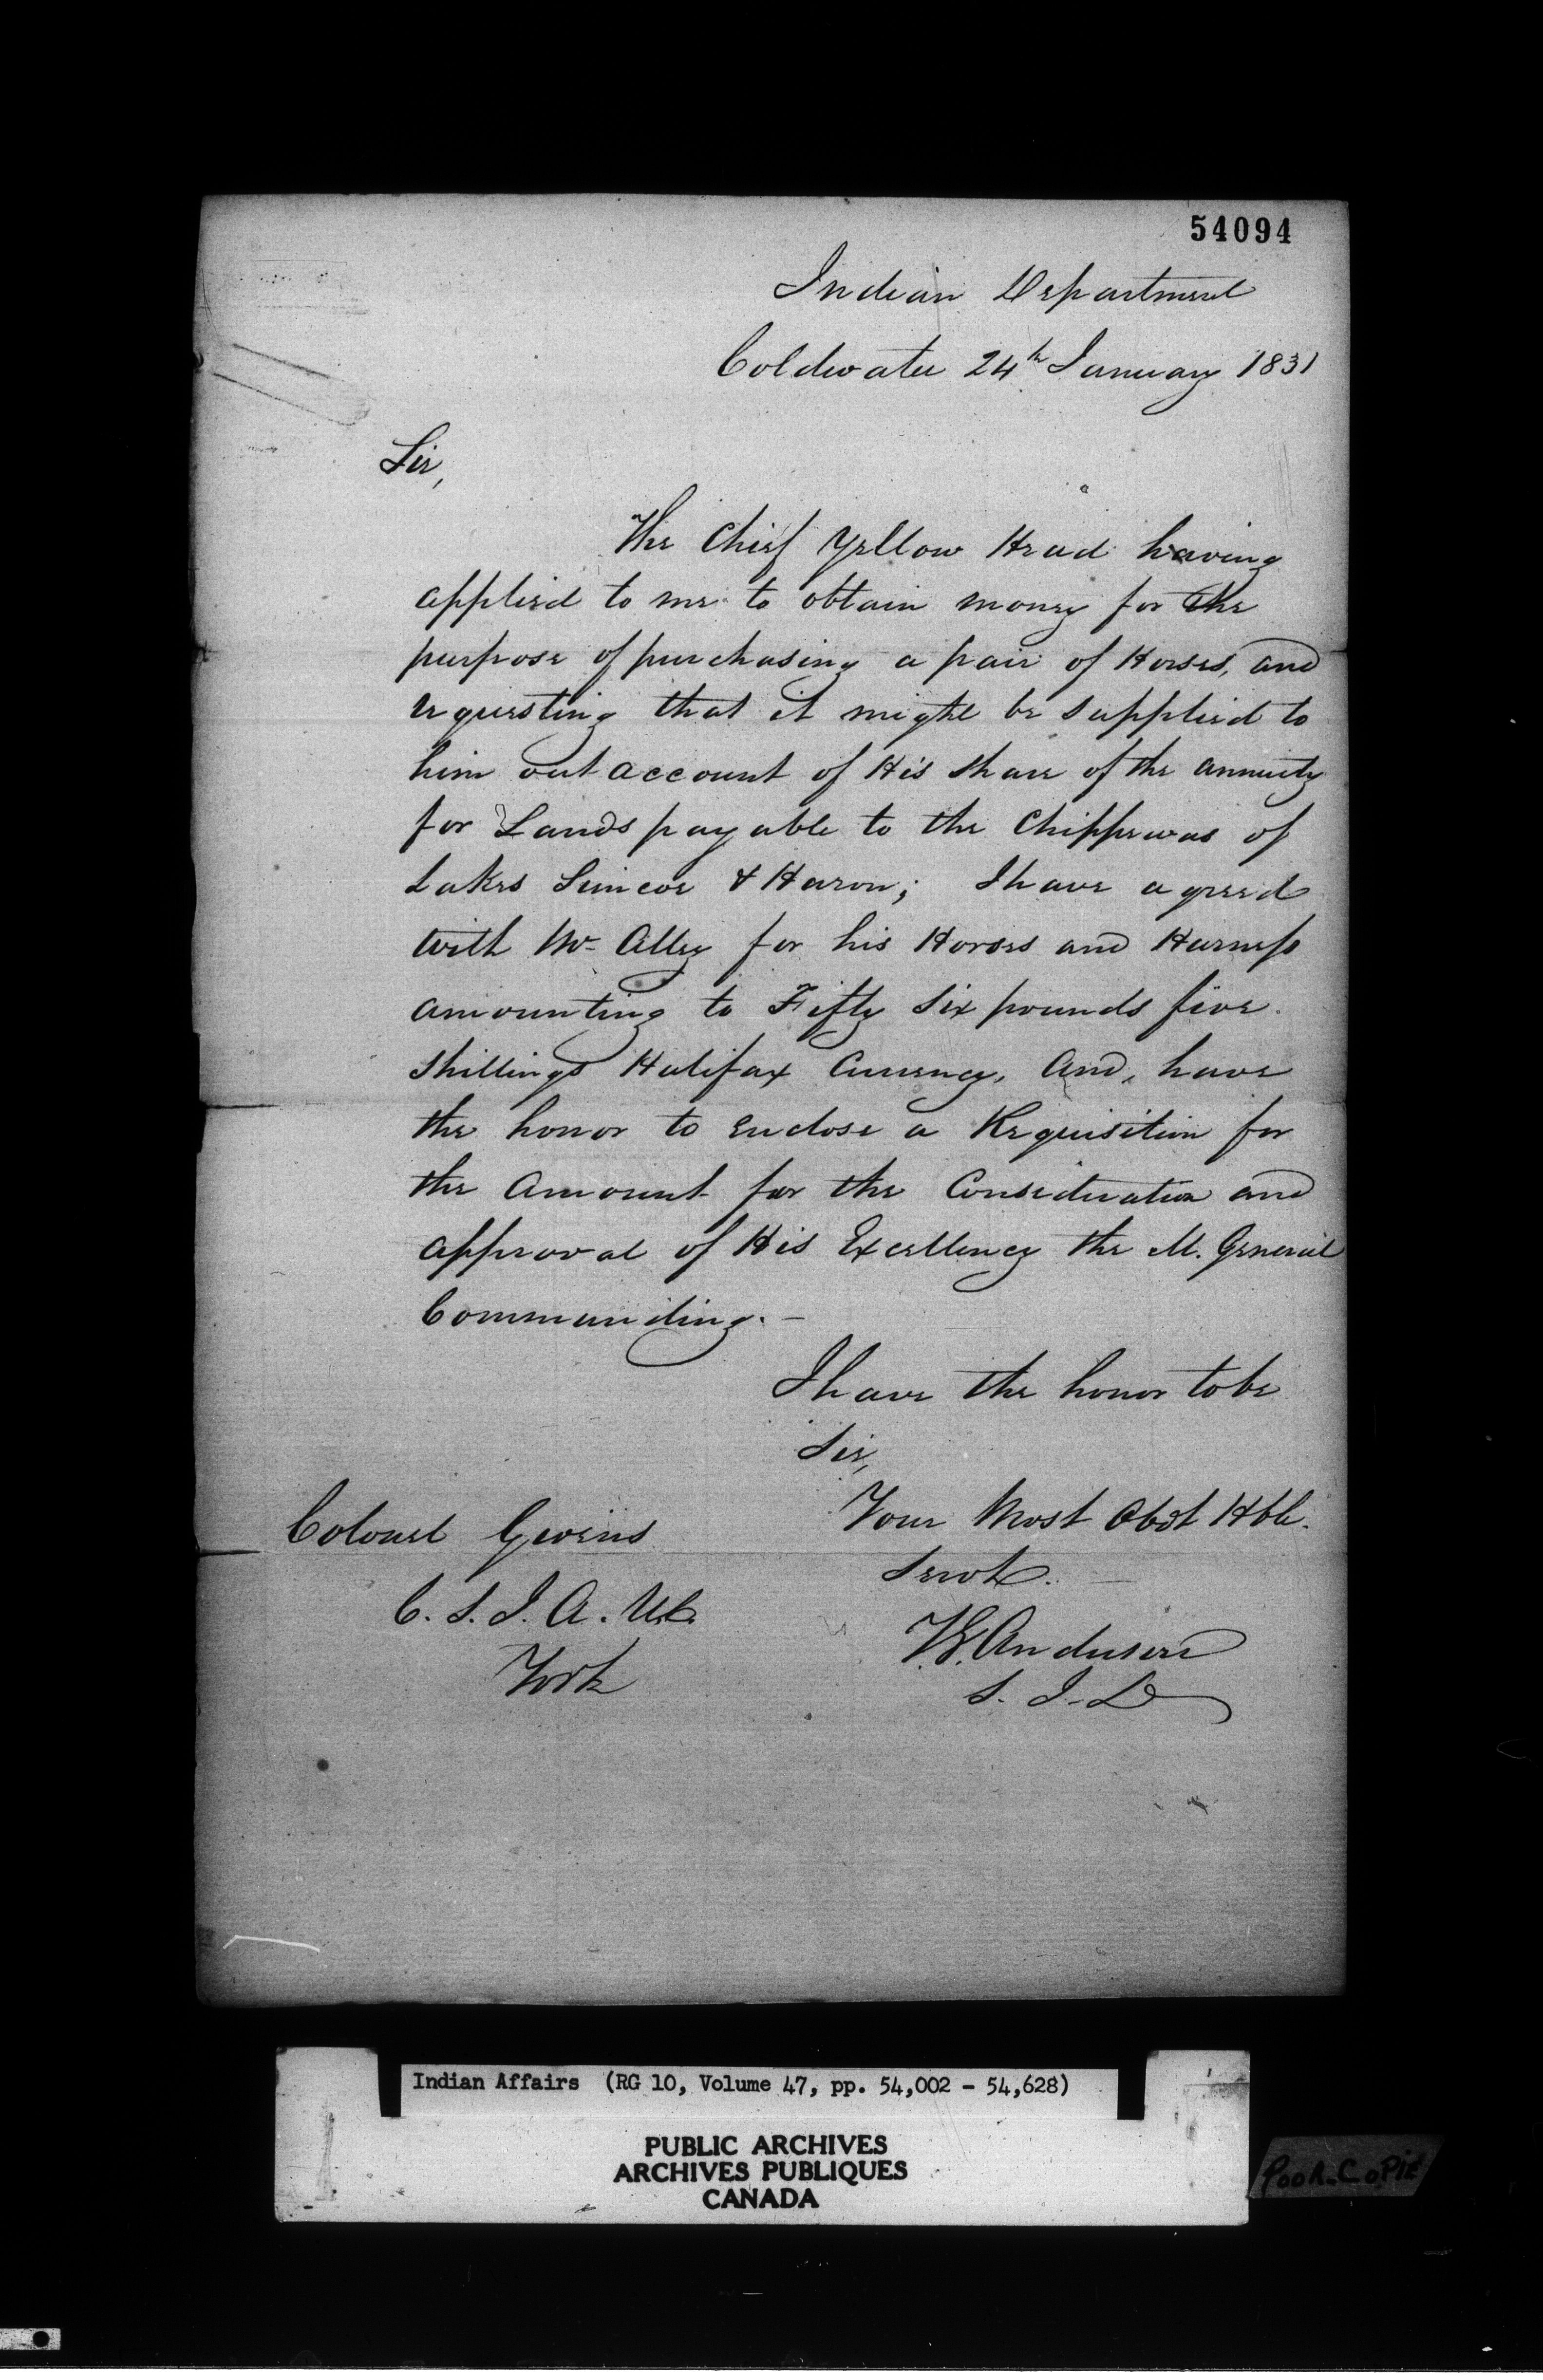 54094
Indian Department
Coldwater 24th January 1831
Sir,
The Chief Yellow Head having
applied to me to obtain money for the
purpose of purchasing a pair of Horses, and
requesting that it might be supplied to
him out account of His share of the annuity
for Lands payable to the Chippewas of
Lakes Simcoe & Huron; I have agreed
with Mr Alley for his Horses and Harness
amounting to Fifty Six pounds five
shillings Halifax Currency, and, have
the honor to enclose a Requisition for
the Amount for the Consideration and
approval of His Excellency the M. General
Commanding. —
I have the honor to be
Sir,
Your Most Obdt Hble.
Servt.
T.G. Anderson
S. I. D
Colonel Givins
C. S. I. A. U.C.
York
Indian Affairs (RG 10, Volume 47, pp. 54,002 - 54,628)
PUBLIC ARCHIVES
ARCHIVES PUBLIQUES
CANADA
POOR COPIE